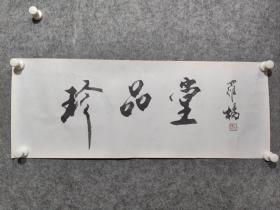 珍品堂
羅楊